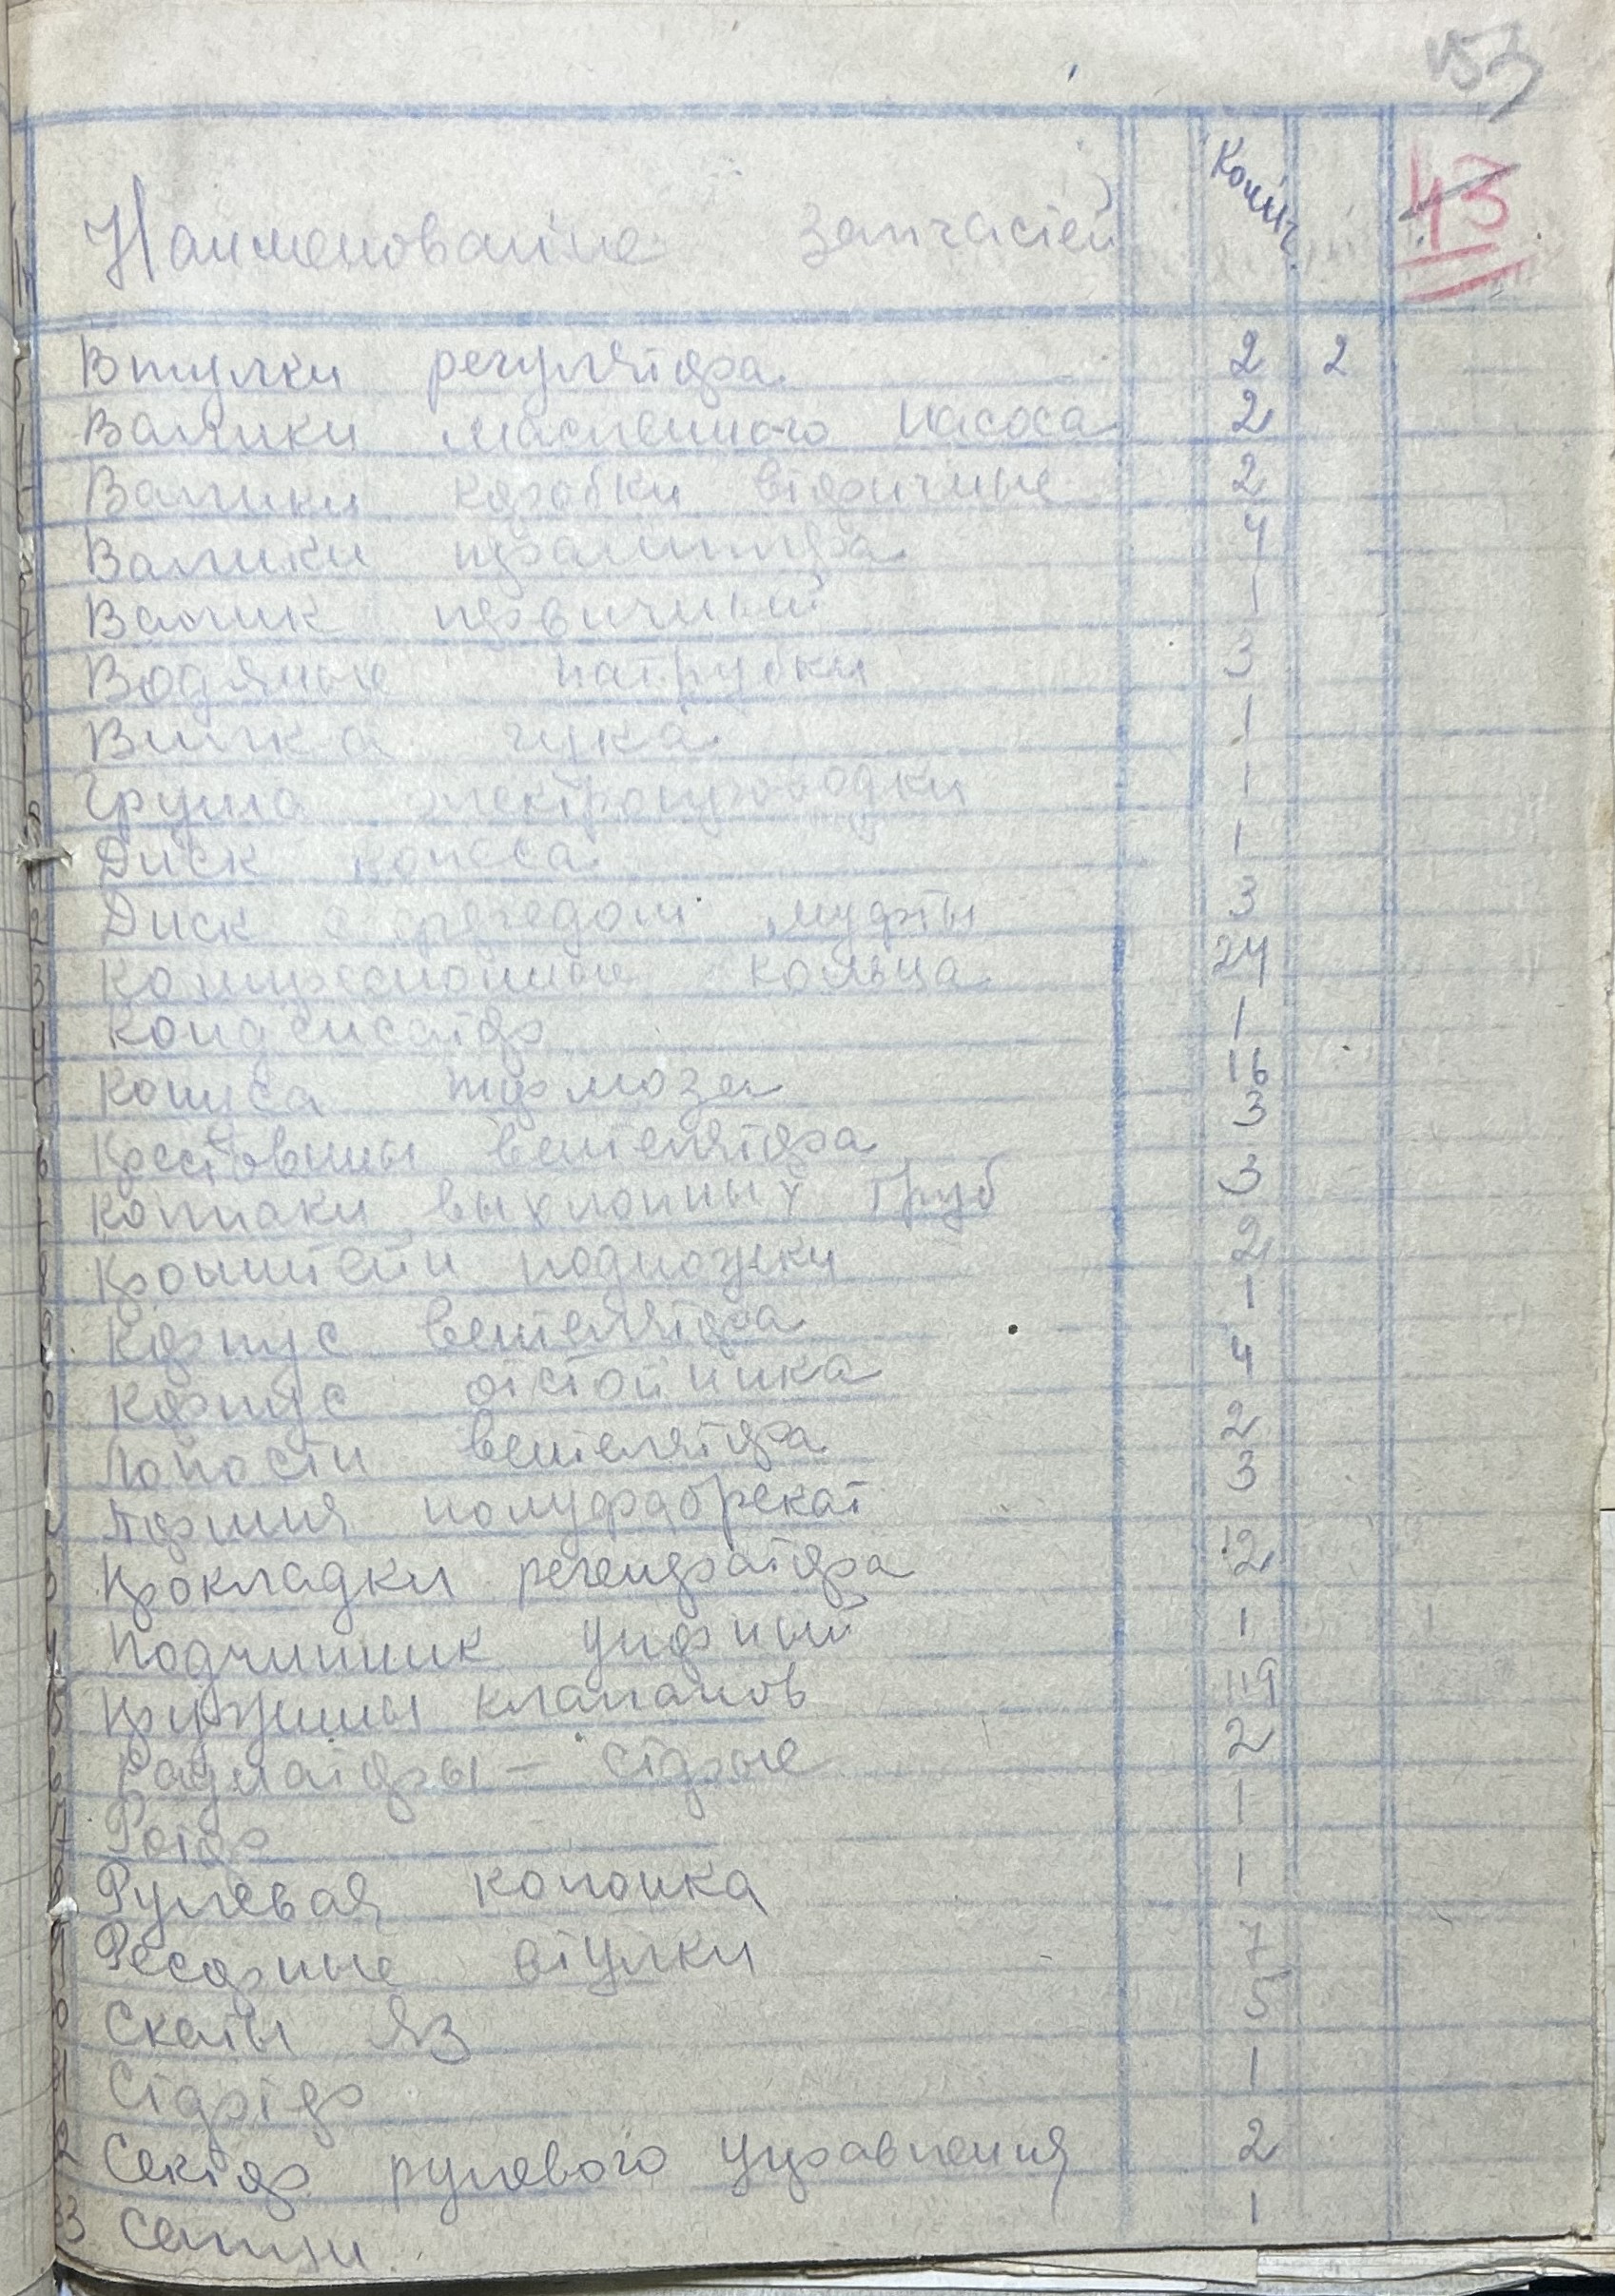 153
43
Наименование запчастей Колич.
Втулки регулятора 2 2
Валики масленного насоса 2
Валики коробки вторичные 2
Валики 4
Валик первичный 1
Водяные патрубки 3
Вилка гука 1
Група электропроводки 1
Диск колеса 1
Диск с фередом муфты 3
Компресионные кольца 24
Кондисатор 1
Конуса тормоза 16
Крестовины вентелятора 3
Колпаки выхлопных труб 3
Кронштейн подножки 2
Корпус вентелятора 1
Корпус отстойника 4
Лопости вентелятора 2
Поршня полуфабрекат 3
Прокладки регенератора 12
Подчипник упорный 1
Пружины клапанов 119
Радиаторы - старые 2
Ротор 1
Рулевая колонка 1
Ресорные втулки 7
Скаты ЯЗ 5
Стартор 1
Сектор рулевого управления 2
33 1